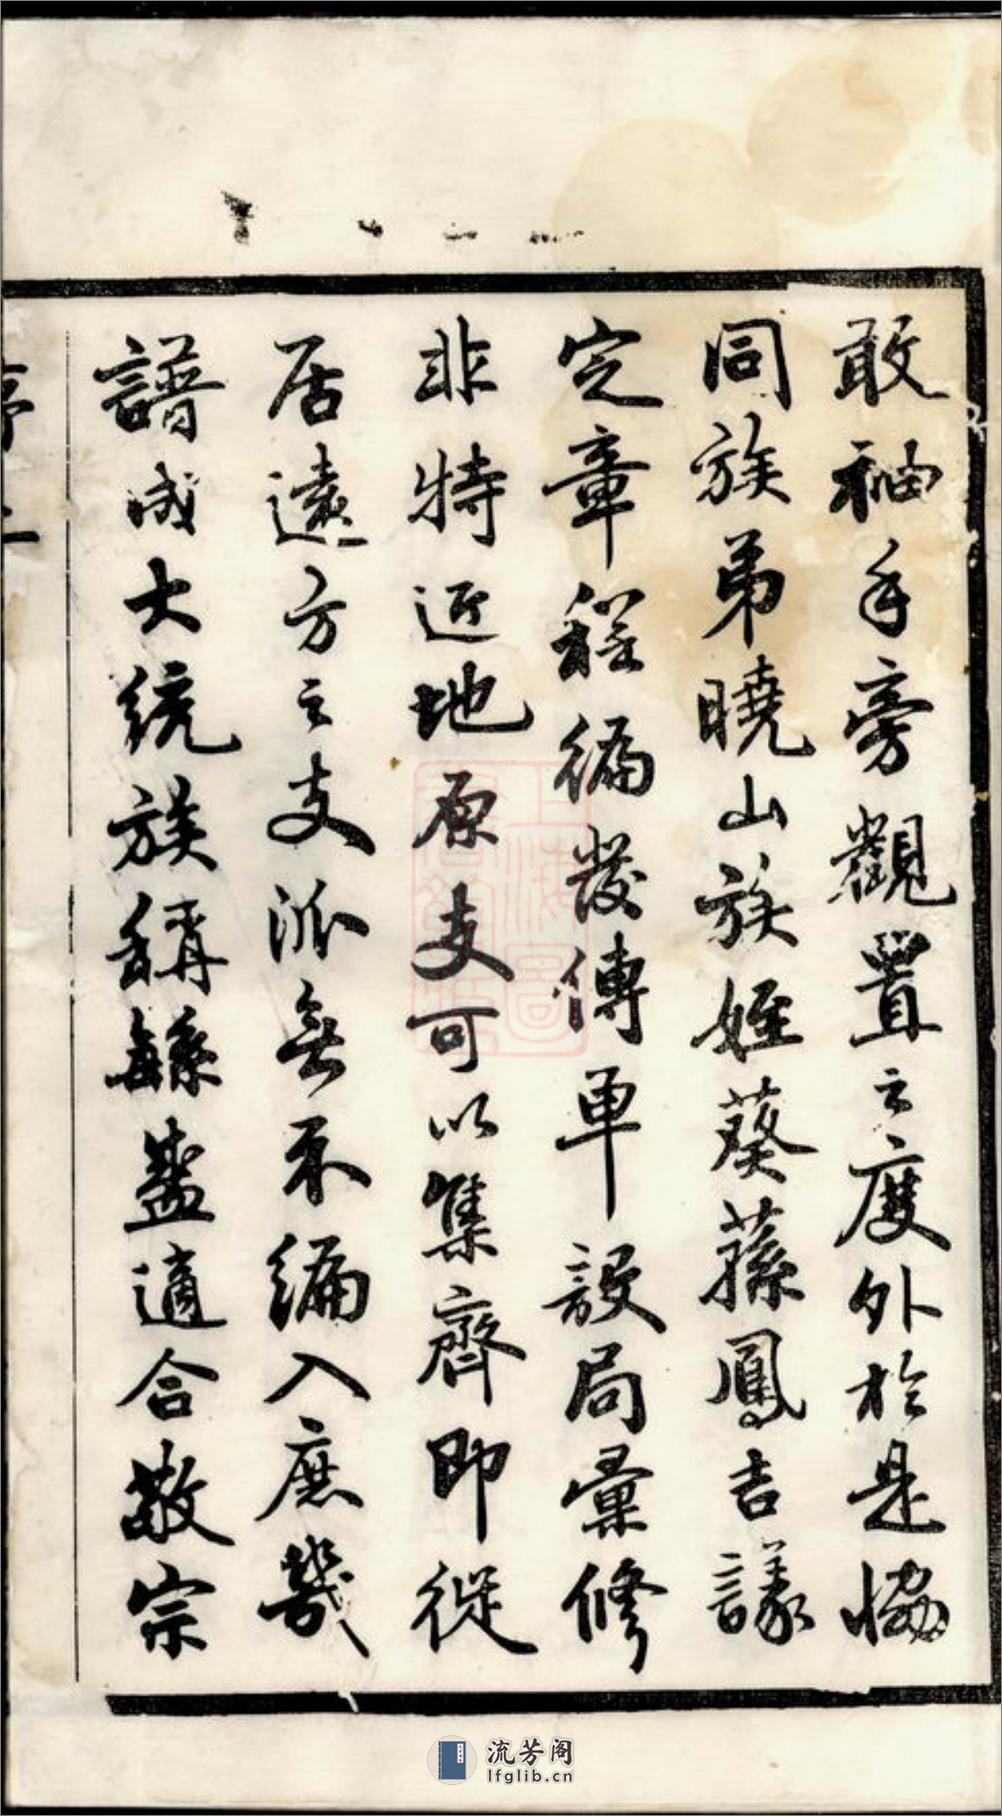 敢袖手旁觀置之度外於是協
同族弟曉山族姪葵蓀鳳吉議
定章程編發傳單設局彙修
非特近地原支可以集齊即徙
居遠方之支派無不編入庶幾
譜成大統族稱繇盍適合敬宗
序
流芳阁
lfglib.cn